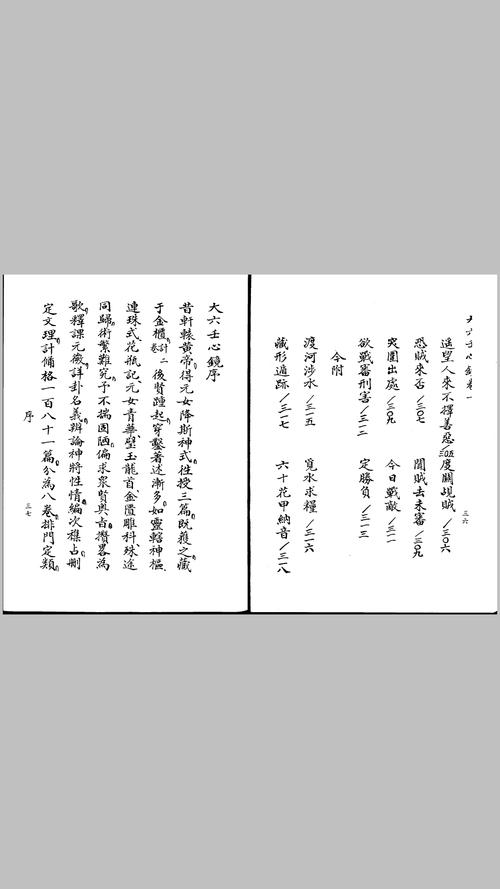 大六壬心鏡卷一
遥望人來不擇善惡/三〇五 度關覘賊/三〇六
恐賊來否/三〇七 聞賊去未審/三〇九
突圍出處/三〇九 今日戰敵/三一一
欲戰審刑害/三一二 定勝負/三一三
今附
渡河涉水/三一五 覓水求糧/三一六
藏形遁跡/三一七 六十花甲納音/三一八
三六
大六壬心鏡序
昔軒轅黃帝得元女降斯神式性授三篇既獲之藏
于金櫃計二卷後賢踵起穿鑿著述漸多如靈轄神樞
連珠式花瓶記元女青華璧玉龍首金匱雕科珠途
同歸術繁難究予不揣固陋偏求衆賢與占攢畧為
歌釋課元微詳卦名義辨論神將性情編次襍占刪
定文理計俻格一百八十一篇分為八卷排門定類
序
三七